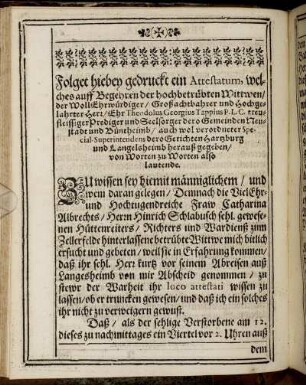 Folget hiebey gedruckt ein Attestatum, wel-
ches auff Begehren der hochbetrübten Wittwen/
der WollEhrwürdiger / Großachtbahrer und Hochge-
lahrter Herr / Ehr Theodosius Georgius Tappius P. L. C. treu-
fleissiger Prediger und Seelsorger dero Gemeinden Neu-
stadt und Büntheimb / auch wol verordneter Spe-
cial-Superintendens dero Gerichten Hartzburg
und Langelsheimb herauß gegeben /
von Worten zu Worten also
lautende.
ZU wissen sey hiemit männiglichem / und
wem daran gelegen / Demnach die VielEhr-
und Hochtugendreiche Fraw Catharina
Albrechts / Herrn Hinrich Schlabusch sehl. gewese-
nen Hüttenreiters / Richters und Wardienß zum
Zellerfelde hinterlassene betrübte Witwe mich bitlich
ersucht und gebeten / weil sie in Erfahrung kommen /
daß ihr sehl. Herr kurtz vor seinem Abreisen auß
Langelsheimb von mir Abscheid genommen / zu
stewr der Warheit ihr loco attestati wissen zu
lassen / ob er truncken gewesen / und daß ich ein solches
ihr nicht zu verweigern gewust.
Daß / als der sehlige Verstorbene am 12.
dieses zu nachmittages ein Viertel vor 2. Uhren auß
dem